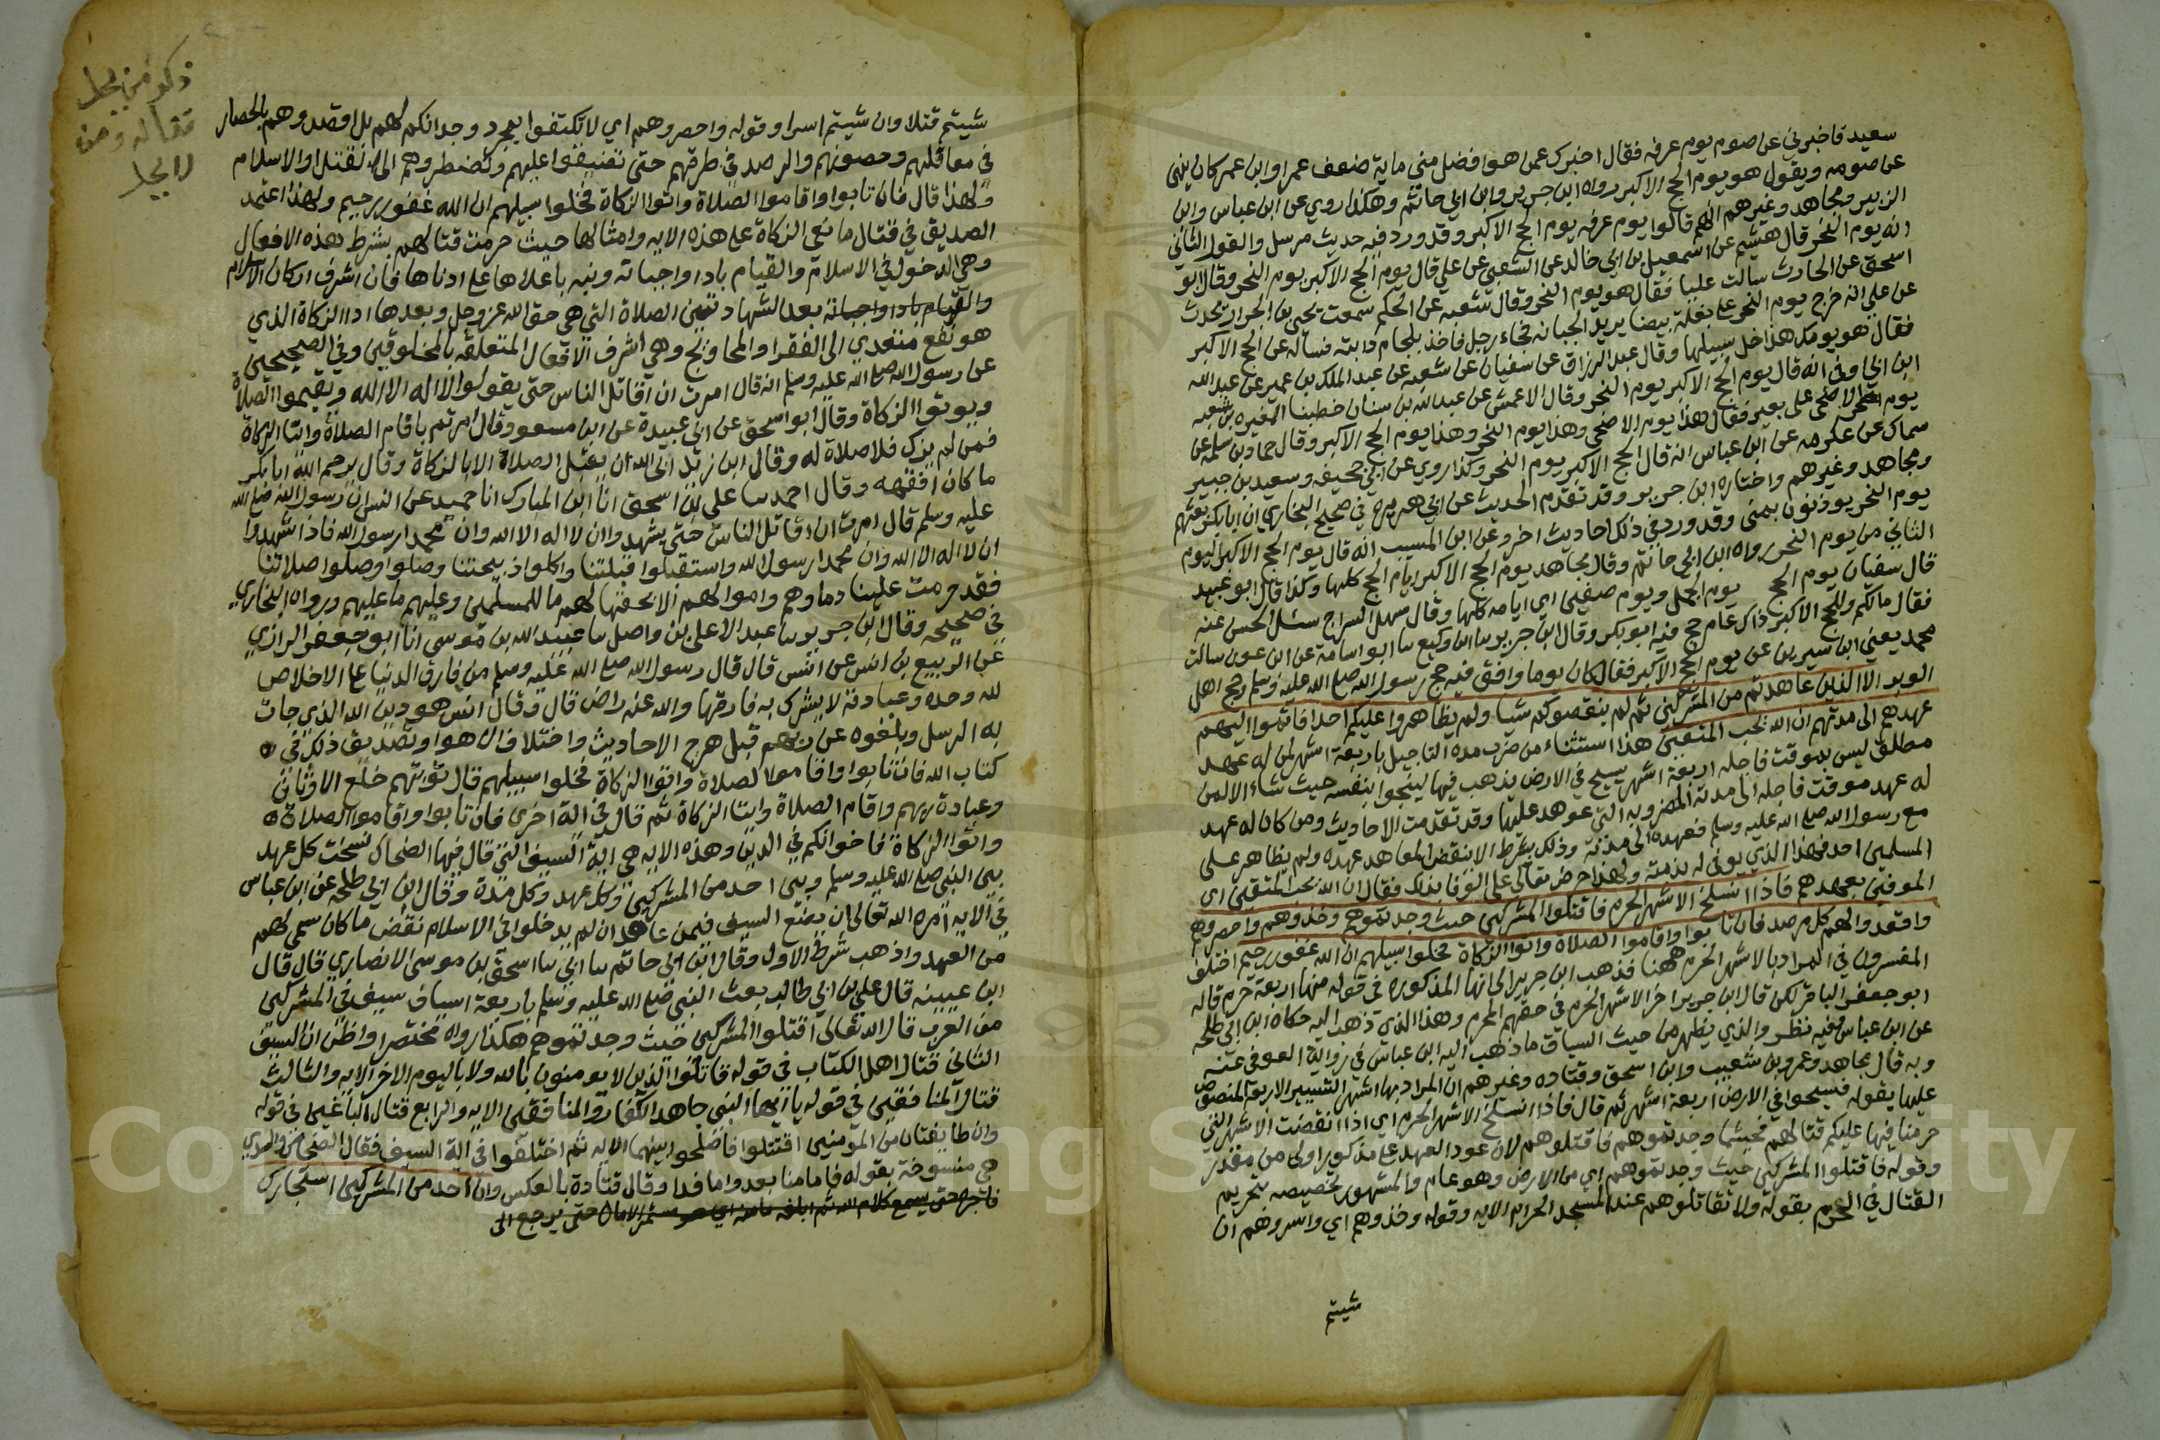 سعيد فاخبرني عن صوم يوم عرفه فقال اخبرك عمن هو افضل مني ماية ضعف عمر او ابن عمر كان ينهى
عن صومه ويقول هو يوم الحج الاكبر رواه ابن جرير وابن ابي حاتم وهكذا روي عن ابن عباس وابن
الزبير ومجاهد وغيرهم انهم قالوا يوم عرفه يوم الحج الاكبر وقد ورد فيه حديث مرسل والقول الثاني
انه يوم النحر قال هشيم عن اسمعيل بن ابي خالد عن الشعبي عن علي قال يوم الحج الاكبر يوم النحر وقال ابو
اسحق عن الحارث سالت عليا فقال هو يوم النحر وقال شعبه عن الحكم سمعت يحيى بن الجزار يحدث
عن علي انه خرج يوم النحر على بغلة بيضا يريد الجبانه فجاء رجل فاخذ بلجام دابته فساله عن الحج الاكبر
فقال هو يومك هذا خل سبيلها وقال عبد الرزاق عن سفيان عن شعبه عن عبد الملك بن عمير عن عبد الله
ابن ابي اوفى انه قال يوم الحج الاكبر يوم النحر وقال الاعمش عن عبد الله بن سنان خطبنا المغيره بن شعبه
يوم الاضحى على بعير فقال هذا يوم الاضحى وهذا يوم النحر وهذا يوم الحج الاكبر وقال حماد بن سلمه عن
سماك عن عكرمه عن ابن عباس انه قال الحج الاكبر يوم النحر وكذا روي عن ابي جحيفه وسعيد بن جبير
ومجاهد وغيرهم واختاره ابن جرير وقد تقدم الحديث عن ابي هريره في صحيح البخاري ان ابا بكر بعثهم
يوم النحر يوذنون بمنى وقد ورد في ذلك احاديث اخر وعن ابن المسيب انه قال يوم الحج الاكبر اليوم
الثاني من يوم النحر رواه ابن ابي حاتم وقال مجاهد يوم الحج الاكبر ايام الحج كلها وكذا قال ابو عبيد
قال سفيان يوم الحج يوم الجمل ويوم صفين اي ايامه كلها وقال سهل السراج سئل الحسن عنه
فقال مالكم وللحج الاكبر ذاك عام حج فيه ابو بكر وقال ابن جرير سا ابن وكيع سا ابو اسامة عن ابن عون سالت
محمد يعني ابن سيرين عن يوم الحج الاكبر فقال كان يوما وافق فيه حج رسول الله صلى الله عليه وسلم وحج اهل
الوبر الا الذين عاهدتم من المشركين ثم لم ينقصوكم شيا ولم يظاهروا عليكم احدا فاتموا اليهم
عهدهم الى مدتهم ان الله يحب المتقين هذا استثناء من ضرب مده التاجيل باربعة اشهر لمن له عهد
مطلق ليس بموقت فاجله اربعة اشهر يسيح في الارض يذهب فيها لينجوا بنفسه حيث شاء الا لمن
له عهد موقت فاجله الى مدته المضروبه التي عوهد عليها وقد تقدمت الاحاديث ومن كان له عهد
مع رسول الله صلى الله عليه وسلم فعهده الى مدته وذلك بشرط الا ينقض المعاهد عهده ولم يظاهر على
المسلمين احد فهذا الذي يوفى له بذمته ولهذا حرض تعالى على الوفا بذلك فقال ان الله يحب المتقين اي
الموفين بعهدهم فاذا انسلخ الاشهر الحرم فاقتلوا المشركين حيث وجدتموهم وخذوهم واحصروهم
واقعدوا لهم كل مرصد فان تابوا واقاموا الصلاة واتوا الزكاة فخلوا سبيلهم ان الله غفور رحيم اختلف
المفسرون في المراد بالاشهر الحرم ههنا فذهب ابن جرير الى انها المذكوره في قوله منها اربعة حرم قاله
ابو جعفر الباقر لكن قال ابن جرير اخر الاشهر الحرم في حقهم المحرم وهذا الذي ذهب اليه حكاه ابن ابي طلحه
عن ابن عباس وفيه نظر والذي يظهر من حيث السياق ما ذهب اليه ابن عباس في رواية العوفي عنه
وبه قال مجاهد وعمرو بن شعيب وابن اسحق وقتاده وغيرهم ان المراد بها اشهر التسيير الاربعة المنصوص
عليها بقوله فسيحوا في الارض اربعة اشهر ثم قال فاذا انسلخ الاشهر الحرم اي اذا انقضت الاشهر التي
حرمنا فيها عليكم قتالهم فحيثما وجدتموهم فاقتلوهم لان عود العهد على مذكور اولى من مقدر
وقوله فاقتلوا المشركين حيث وجدتموهم اي من الارض وهو عام والمشهور تخصيصه بتحريم
القتال في الحرم بقوله ولا تقاتلوهم عند المسجد الحرام الايه وقوله وخذوهم اي واسروهم ان
شيتم
شيتم قتلا وان شيتم اسرا وقوله واحصروهم اي لا تكتفوا بمجرد وجدانكم لهم بل اقصدوهم بالحصار
في معاقلهم وحصونهم والرصد في طرقهم حتى تضيقوا عليهم وتضطروهم الى القتل او الاسلام
ولهذا قال فان تابوا واقاموا الصلاة واتوا الزكاة فخلوا سبيلهم ان الله غفور رحيم ولهذا اعتمد
الصديق في قتال مانعي الزكاة على هذه الايه وامثالها حيث حرمت قتالهم بشرط هذه الافعال
وهي الدخول في الاسلام والقيام بادا واجباته ونبه باعلاها على ادناها فان اشرف اركان الاسلام
والقيام بادا واجباته بعد الشهادتين الصلاة التي هي حق الله عز وجل وبعدها ادا الزكاة الذي
هو نفع متعدي الى الفقرا والمحاويج وهي اشرف الافعال المتعلقة بالمخلوقين وفي الصحيحين
عن رسول الله صلى الله عليه وسلم انه قال امرت ان اقاتل الناس حتى يقولوا لا اله الا الله ويقيموا الصلاة
ويوتوا الزكاة وقال ابو اسحق عن ابي عبيدة عن ابن مسعود قال امرتم باقام الصلاة وايتا الزكاة
فمن لم يزك فلا صلاة له وقال ابن زيد ابى الله ان يقبل الصلاة الا بالزكاة وقال يرحم الله ابا بكر
ما كان افقهه وقال احمد سا علي بن اسحق انا ابن المبارك انا حميد عن انس ان رسول الله صلى الله
عليه وسلم قال امرت ان اقاتل الناس حتى يشهدوا ان لا اله الا الله وان محمدا رسول الله فاذا شهدوا
ان لا اله الا الله وان محمدا رسول الله واستقبلوا قبلتنا واكلوا ذبيحتنا وصلوا صلاتنا
فقد حرمت علينا دماوهم واموالهم الا بحقها لهم ما للمسلمين وعليهم ما عليهم ورواه البخاري
في صحيحه وقال ابن جرير سا عبد الاعلى بن واصل سا عبيد الله بن موسى انا ابو جعفر الرازي
عن الربيع بن انس عن انس قال قال رسول الله صلى الله عليه وسلم من فارق الدنيا على الاخلاص
لله وحده وعبادته لا يشرك به فارقها والله عنه راض قال وقال انس هو دين الله الذي جات
به الرسل وبلغوه عن ربهم قبل هرج الاحاديث واختلاف الاهوا وتصديق ذلك في
كتاب الله فان تابوا واقاموا الصلاة واتوا الزكاة فخلوا سبيلهم قال توبتهم خلع الاوثان
وعبادة ربهم واقام الصلاة وايتا الزكاة ثم قال في اية اخرى فان تابوا واقاموا الصلاة
واتوا الزكاة فاخوانكم في الدين وهذه الايه هي اية السيف التي قال فيها الضحاك نسخت كل عهد
بين النبي صلى الله عليه وسلم وبين احد من المشركين وكل عهد وكل مدة وقال ابن ابي طلحه عن ابن عباس
في الايه امره الله تعالى ان يضع السيف فيمن عاهد ان لم يدخلوا في الاسلام ونقض ما كان سمي لهم
من العهد واذهب شرط الاول وقال ابن ابي حاتم سا ابي سا اسحق بن موسى الانصاري قال قال
ابن عيينه قال علي بن ابي طالب بعث النبي صلى الله عليه وسلم باربعة اسياف سيف في المشركين
من العرب قال الله تعالى اقتلوا المشركين حيث وجدتموهم هكذا رواه مختصرا واظن ان السيف
الثاني قتال اهل الكتاب في قوله قاتلوا الذين لا يومنون بالله ولا باليوم الاخر الايه والثالث
قتال المنافقين في قوله يا ايها النبي جاهد الكفار والمنافقين الايه والرابع قتال الباغين في قوله
وان طايفتان من المومنين اقتتلوا فاصلحوا بينهما الايه ثم اختلفوا في اية السيف فقال الضحاك والسدي
هي منسوخة بقوله فاما منا بعد واما فدا وقال قتادة بالعكس وان احد من المشركين استجارك
فاجره حتى يسمع كلام الله ثم ابلغه مامنه اي الامان حتى يرجع الى
ومن
Copying
Sity